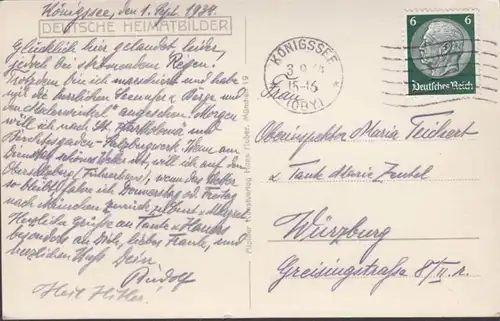 Königssee, den 1. Sept. 1934.
DEUTSCHE HEIMATBILDER
Glücklich hier gelandet, leider,
jedoch bei strömendem Regen!
Trotzdem bin ich marschiert und habe
mir die herrlichen Seeufer u. Berge und
den "Malerwinkel" angesehen. Morgen
will ich nach St. Bartholomä und
Berchtesgaden - Salzbergwerk. Wenn am
Dienstag schönes Wetter ist, will ich auf den
Obersalzberg (Führerhaus), wenn das Wetter
so bleibt, fahre ich Donnerstag od. Freitag
nach München zurück
Herzliche Grüße an Tante u.
besonders an Dich, liebes Fraule, und
herzlichen Kuß Dein
Rudolf
Heil Hitler!
Kunstverlag Hans Huber, München 19
KÖNIGSSEE
15-16
(OBY)
6 6
Deutsches Reich
Frau
Oberinspektor Maria Teichert
z. Tante Marie Zentel
Würzburg
Greisingstraße 8/II. r.